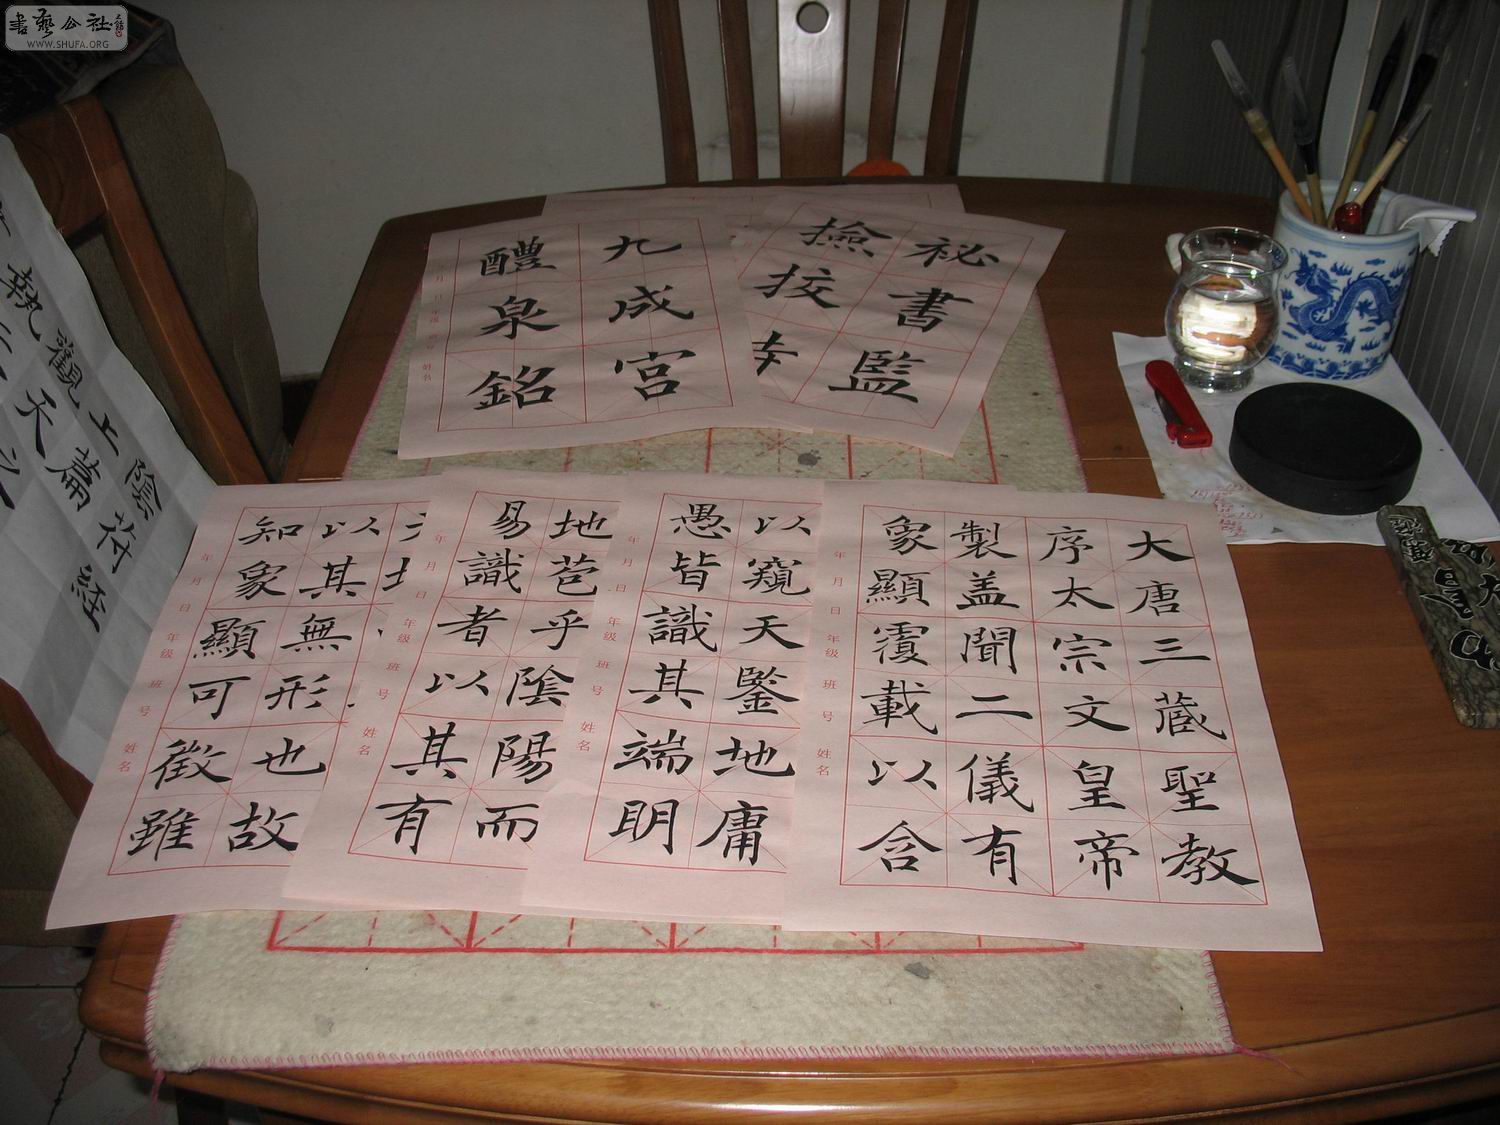 書藝公社
WWW.SHUFA.ORG
九成宮
醴泉銘
年 月 日 年級 班 号 姓名
祕書監
撿挍
陰符經
上篇
觀天
執天
大唐三藏聖教
序太宗文皇帝
製盖聞二儀有
象顯覆載以含
年 月 日 年級 班 号 姓名
以窺天鑒地庸
愚皆識其端明
年 月 日 年級 班 号 姓名
地苞乎陰陽而
易識者以其有
年 月 日 年級 班 号 姓名
以其無形也故
知象顯可徵雖
年 月 日 年級 班 号 姓名